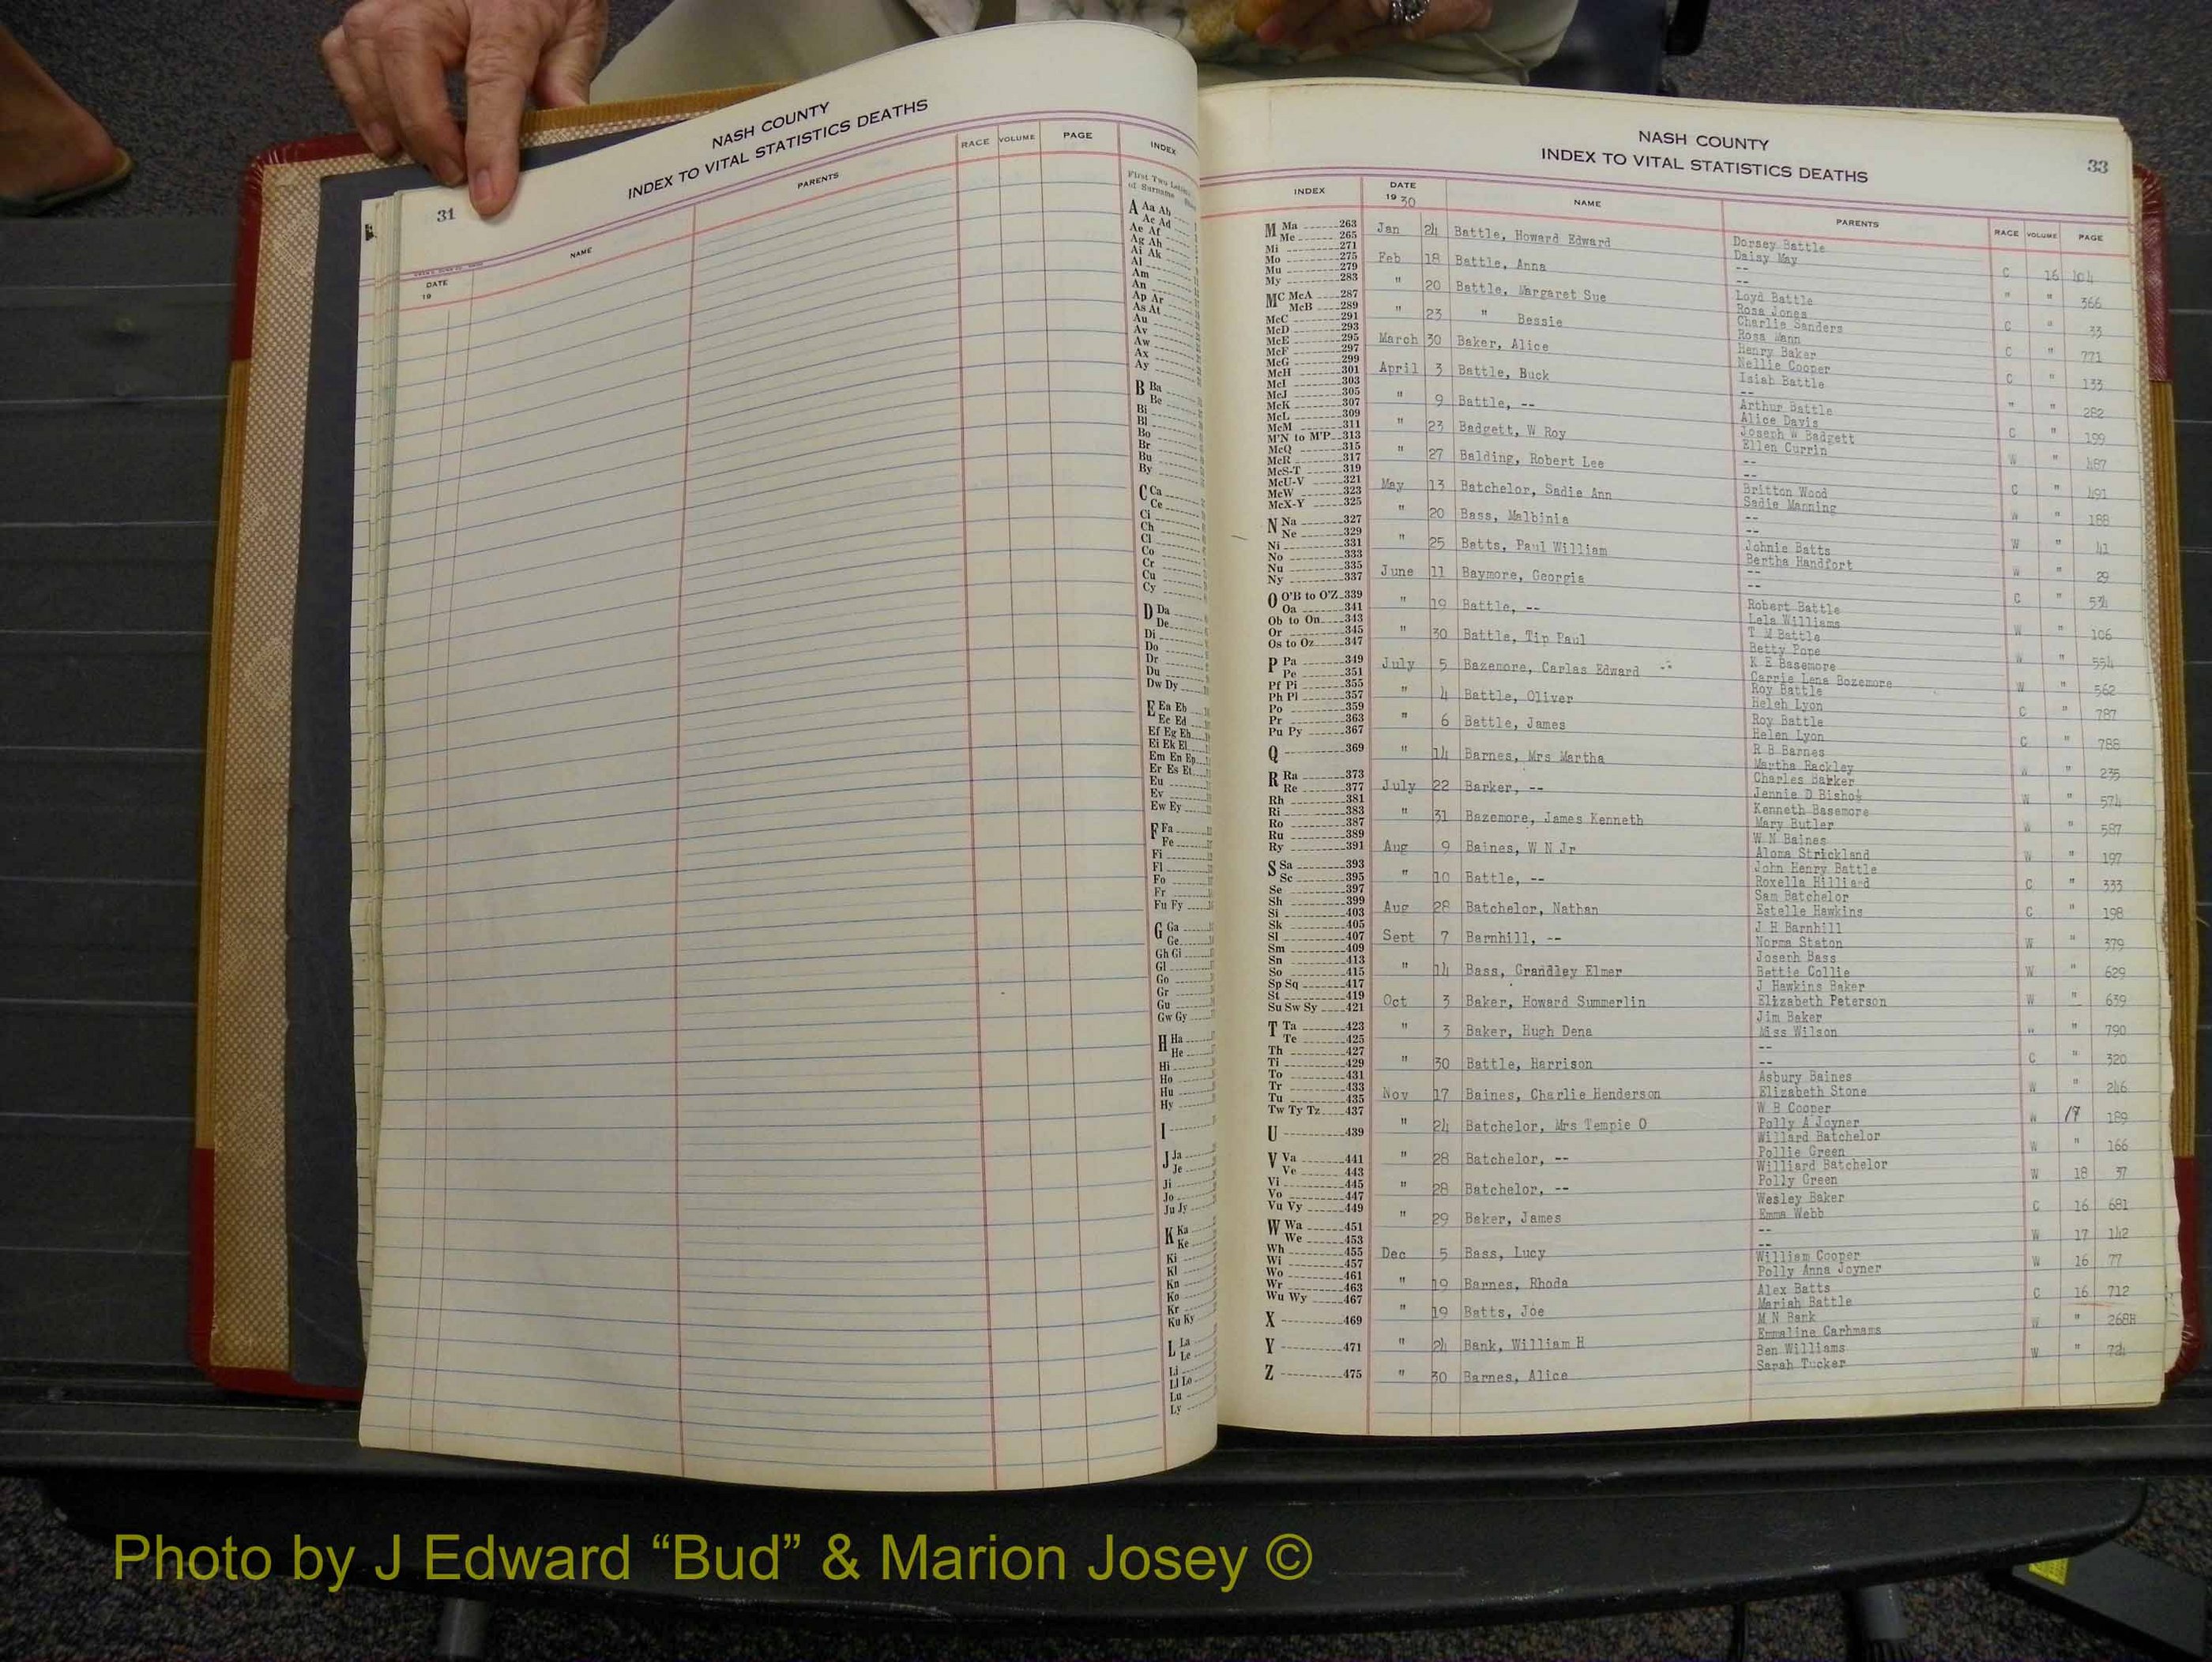 NASH COUNTY
INDEX TO VITAL STATISTICS DEATHS
31
DATE
19
NAME
PARENTS
RACE VOLUME PAGE
INDEX
First Two
of Surname
A Aa Ab
Ac Ad
Ae Af
Ag Ah
Ai Ak
Al
Am
An
Ap Ar
As At
Au
Av
Aw
Ax
Ay
B Ba
Be
Bi
Bl
Bo
Br
Bu
By
C Ca
Ce
Ci
Ch
Cl
Co
Cr
Cu
Cy
D Da
De
Di
Do
Dr
Du
Dw Dy
E Ea Eb
Ec Ed
Ef Eg Eh
Ei Ek El
Em En Ep
Er Es Et
Eu
Ev
Ew Ey
F Fa
Fe
Fi
Fl
Fo
Fr
Fu Fy
G Ga
Ge
Gh Gi
Gl
Go
Gr
Gu
Gw Gy
H Ha
He
Hi
Ho
Hu
Hy
I
J Ja
Je
Ji
Jo
Ju Jy
K Ka
Ke
Ki
Kl
Kn
Ko
Kr
Ku Ky
L La
Le
Li
Ll Lo
Lu
Ly
NASH COUNTY
INDEX TO VITAL STATISTICS DEATHS
33
INDEX
M Ma 263
Me 265
Mi 271
Mo 275
Mu 279
My 283
Mc McA 287
McB 289
McC 291
McD 293
McE 295
McF 297
McG 299
McH 301
McI 303
McJ 305
McK 307
McL 309
McM 311
M'N to M'P 313
McQ 315
McR 317
McS-T 319
McU-V 321
McW 323
McX-Y 325
N Na 327
Ne 329
Ni 331
No 333
Nu 335
Ny 337
O O'B to O'Z 339
Oa 341
Ob to On 343
Or 345
Os to Oz 347
P Pa 349
Pe 351
Pf Pi 355
Ph Pl 357
Po 359
Pr 363
Pu Py 367
Q 369
R Ra 373
Re 377
Rh 381
Ri 383
Ro 387
Ru 389
Ry 391
S Sa 393
Sc 395
Se 397
Sh 399
Si 403
Sk 405
Sl 407
Sm 409
Sn 413
So 415
Sp Sq 417
St 419
Su Sw Sy 421
T Ta 423
Te 425
Th 427
Ti 429
To 431
Tr 433
Tu 435
Tw Ty Tz 437
U 439
V Va 441
Ve 443
Vi 445
Vo 447
Vu Vy 449
W Wa 451
We 453
Wh 455
Wi 457
Wo 461
Wr 463
Wu Wy 467
X 469
Y 471
Z 475
DATE
19 30
NAME
PARENTS
RACE VOLUME PAGE
Jan 24 Battle, Howard Edward Dorsey Battle
Daisy May C 16 404
Feb 18 Battle, Anna --
-- " " 366
" 20 Battle, Margaret Sue Loyd Battle
Rosa Jones C " 33
" 23 " Bessie Charlie Sanders
Rosa Mann C " 771
March 30 Baker, Alice Henry Baker
Nellie Cooper C " 133
April 3 Battle, Buck Isiah Battle
-- " " 282
" 9 Battle, -- Arthur Battle
Alice Davis C " 199
" 23 Badgett, W Roy Joseph W Badgett
Ellen Currin W " 487
" 27 Balding, Robert Lee --
-- C " 491
May 13 Batchelor, Sadie Ann Britton Wood
Sadie Manning W " 188
" 20 Bass, Malbinia --
-- W " 41
" 25 Batts, Paul William Johnie Batts
Bertha Handfort W " 29
June 11 Baymore, Georgia --
-- C " 534
" 19 Battle, -- Robert Battle
Lela Williams W " 106
" 30 Battle, Tip Paul T M Battle
Betty Pope W " 554
July 5 Bazemore, Carlas Edward K E Basemore
Carrie Lena Bozemore W " 562
" 4 Battle, Oliver Roy Battle
Heleh Lyon C " 787
" 6 Battle, James Roy Battle
Helen Lyon C " 788
" 14 Barnes, Mrs Martha R B Barnes
Martha Rackley W " 235
July 22 Barker, -- Charles Barker
Jennie D Bishop W " 574
" 31 Bazemore, James Kenneth Kenneth Basemore
Mary Butler W " 587
Aug 9 Baines, W N Jr W N Baines
Aloma Strickland W " 197
" 10 Battle, -- John Henry Battle
Roxella Hilliard C " 333
Aug 28 Batchelor, Nathan Sam Batchelor
Estelle Hawkins C " 198
Sept 7 Barnhill, -- J H Barnhill
Norma Staton W " 379
" 14 Bass, Grandley Elmer Joseph Bass
Bettie Collie W " 629
Oct 3 Baker, Howard Summerlin J Hawkins Baker
Elizabeth Peterson W " 639
" 3 Baker, Hugh Dena Jim Baker
Miss Wilson " " 790
" 30 Battle, Harrison --
-- C " 320
Nov 17 Baines, Charlie Henderson Asbury Baines
Elizabeth Stone W " 246
" 24 Batchelor, Mrs Tempie O W B Cooper
Polly A Joyner W 17 189
" 28 Batchelor, -- Willard Batchelor
Pollie Green W " 166
" 28 Batchelor, -- Williard Batchelor
Polly Green W 18 37
" 29 Baker, James Wesley Baker
Emma Webb C 16 681
Dec 5 Bass, Lucy --
-- W 17 142
" 19 Barnes, Rhoda William Cooper
Polly Anna Joyner W 16 77
" 19 Batts, Joe Alex Batts
Mariah Battle C 16 712
" 24 Bank, William H M N Bank
Emmaline Carhmans W " 268H
" 30 Barnes, Alice Ben Williams
Sarah Tucker W " 724
Photo by J Edward “Bud” & Marion Josey ©